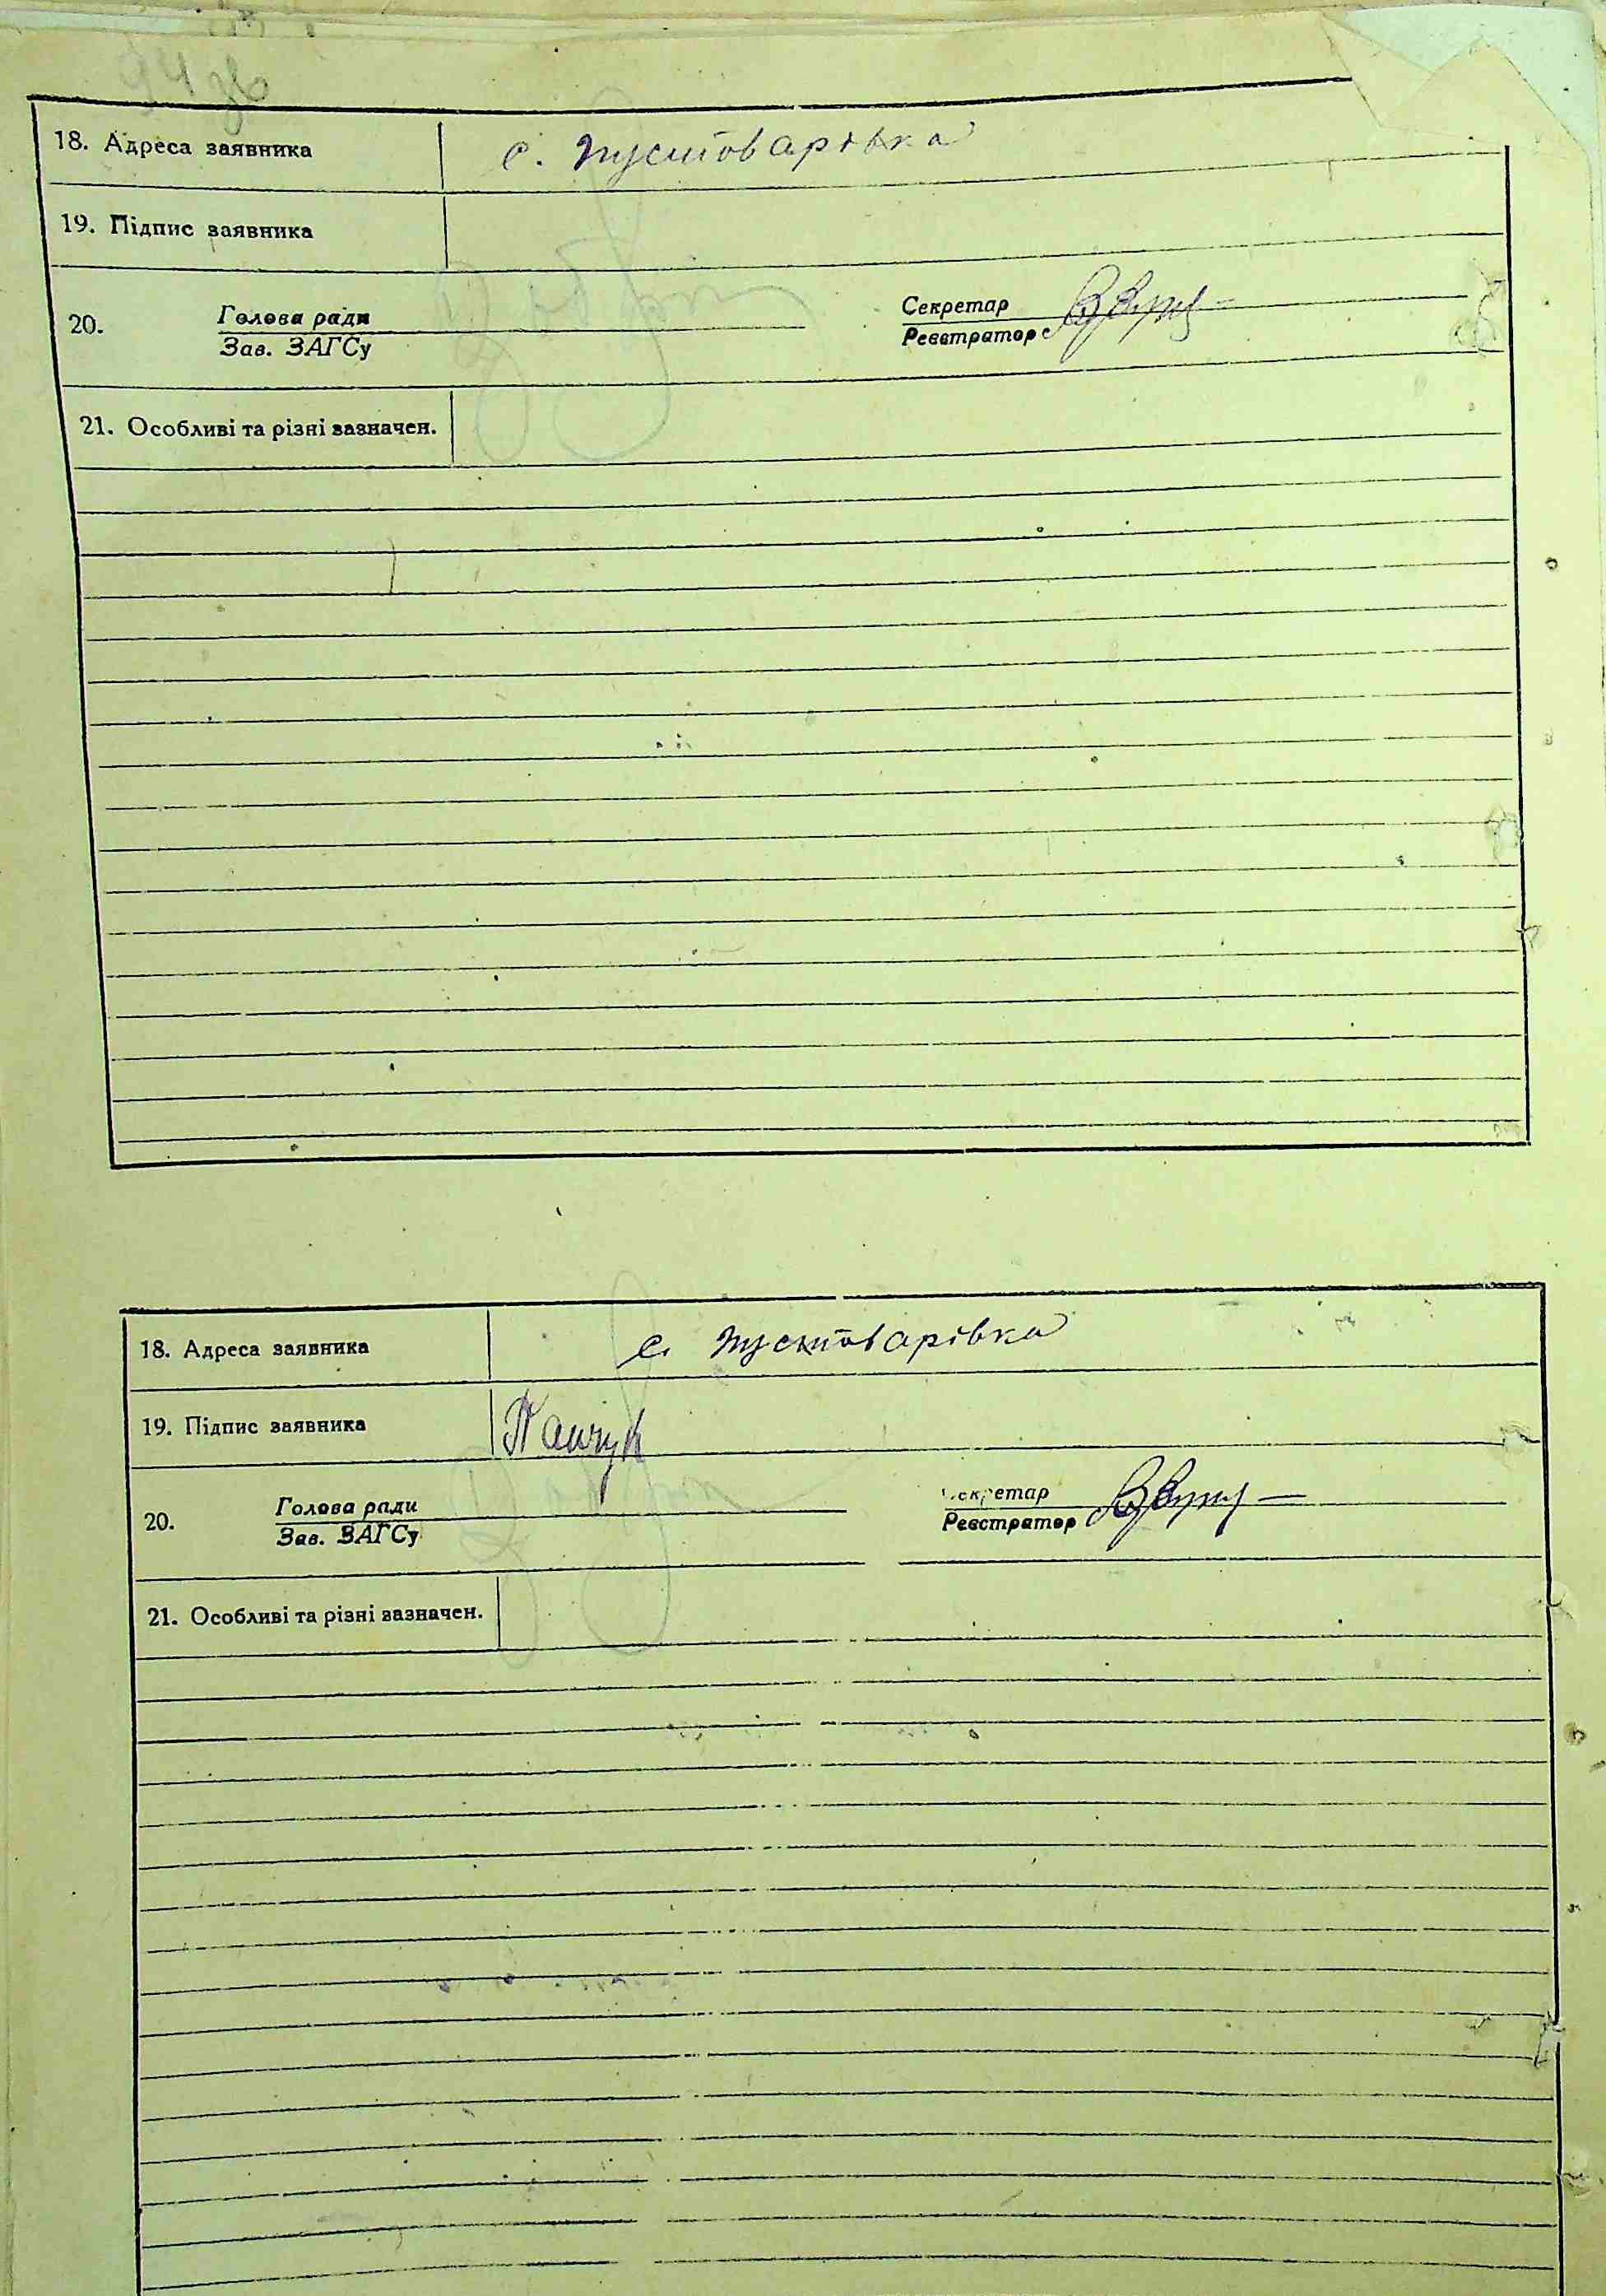 94 зв
18. Адреса заявника с. Пустоварівка
19. Підпис заявника
20. Голова ради Секретар
Зав. ЗАГСу Реєстратор
21. Особливі та різні зазначен.
18. Адреса заявника с. Пустоварівка
19. Підпис заявника
20. Голова ради Секретар
Зав. ЗАГСу Реєстратор
21. Особливі та різні зазначен.